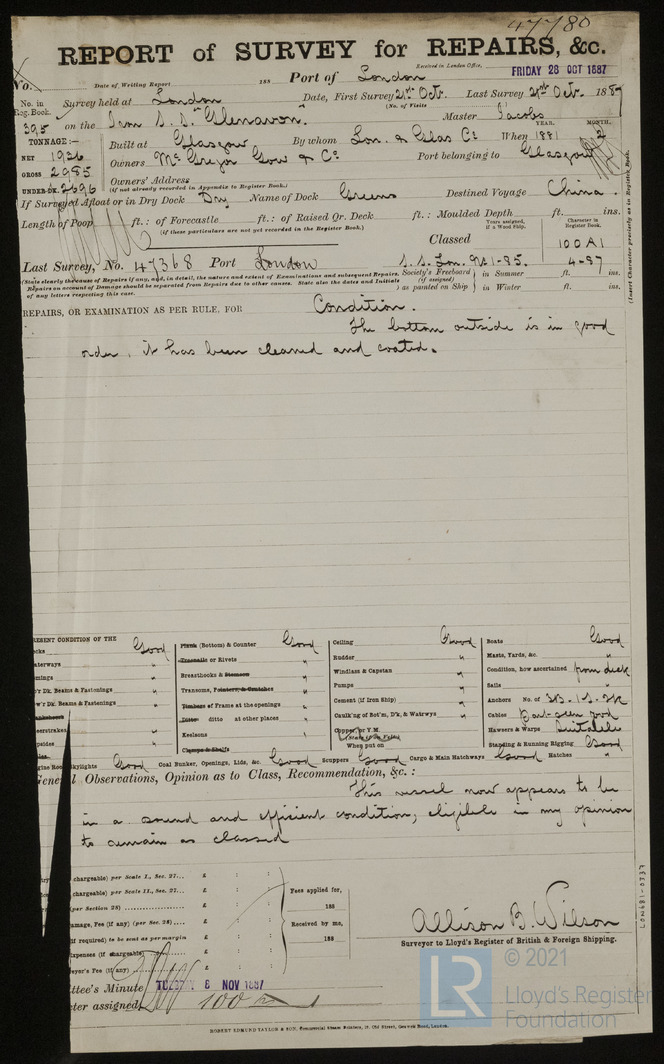 47780
REPORT of SURVEY for REPAIRS, &c.
Received in London Office,
FRIDAY 28 OCT 1887
No.
Date of Writing Report 188 Port of London
No. in Reg. Book. Survey held at London Date, First Survey 21st Oct. Last Survey 21st Oct. 1887
(No. of Visits
395 on the Iron S.S. "Glenavon. Master Jacobs
TONNAGE:— YEAR. MONTH.
NET 1936 Built at Glasgow By whom Lon. & Glas Co When 1881 2
GROSS 2985 Owners McGregor Gow & Co Port belonging to Glasgow
UNDER-DK. 2696 Owners' Address
(if not already recorded in Appendix to Register Book.)
If Surveyed Afloat or in Dry Dock Dry Name of Dock Greens Destined Voyage China.
Length of Poop ft.: of Forecastle ft.: of Raised Qr. Deck ft.: Moulded Depth ft. ins.
(if these particulars are not yet recorded in the Register Book.)
Years assigned, if a Wood Ship. Character in Register Book.
Classed 100A1
Last Survey, No. 47368 Port London S.S. Lon. No.1-85. 4-87
(State clearly the cause of Repairs if any, and, in detail, the nature and extent of Examinations and subsequent Repairs. Repairs on account of Damage should be separated from Repairs due to other causes. State also the dates and Initials of any letters respecting this case.
Society's Freeboard (if assigned) as painted on Ship in Summer ft. ins.
in Winter ft. ins.
(Insert Character precisely as in Register Book.
REPAIRS, OR EXAMINATION AS PER RULE, FOR Condition.
The bottom outside is in good
order, it has been cleaned and coated.
RESENT CONDITION OF THE
ecks Good Plank (Bottom) & Counter Good Ceiling Good Boats Good
aterways " Treenails or Rivets " Rudder " Masts, Yards, &c. "
mings " Breasthooks & Stemson " Windlass & Capstan " Condition, how ascertained from deck
w'r Dk. Beams & Fastenings " Transoms, Pointers, & Crutches " Pumps " Sails "
w'r Dk. Beams & Fastenings " Timbers of Frame at the openings " Cement (if Iron Ship) " Anchors No. of 3B. 1S. 2K
Ditto ditto at other places " Caulk'ng of Bot'm, D'k, & Watrwys " Cables
eerstrakes " Keelsons " Copper, or Y.M. Hawsers & Warps Suitable
Clamps & Shelfs When put on Standing & Running Rigging Good
Engine Room Skylights Good Coal Bunker, Openings, Lids, &c. Good Scuppers Good Cargo & Main Hatchways Good Hatches "
General Observations, Opinion as to Class, Recommendation, &c.:
This vessel now appears to be
in a sound and efficient condition, eligible in my opinion
to remain as classed
chargeable) per Scale I., Sec. 27... £ : :
chargeable) per Scale II., Sec. 27... £ : : Fees applied for,
(per Section 28) £ : : 188
amage, Fee (if any) (per Sec. 28) £ : : Received by me,
if required) to be sent as per margin £ : : 188
xpenses (if chargeable) £ : :
veyor's Fee (if any) £ : :
Allison B. Wilson
Surveyor to Lloyd's Register of British & Foreign Shipping.
ttee's Minute TUESDAY 8 NOV 1887
cter assigned 100 A 1
LON681-0337
ROBERT EDMUND TAYLOR & SON, Commercial Steam Printers, 19, Old Street, Goswell Road, London.
LR © 2021
Lloyd's Register
Foundation